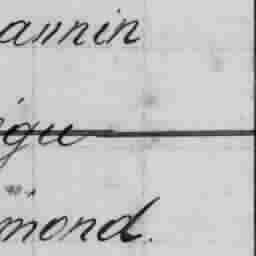 annin
igu
mond.